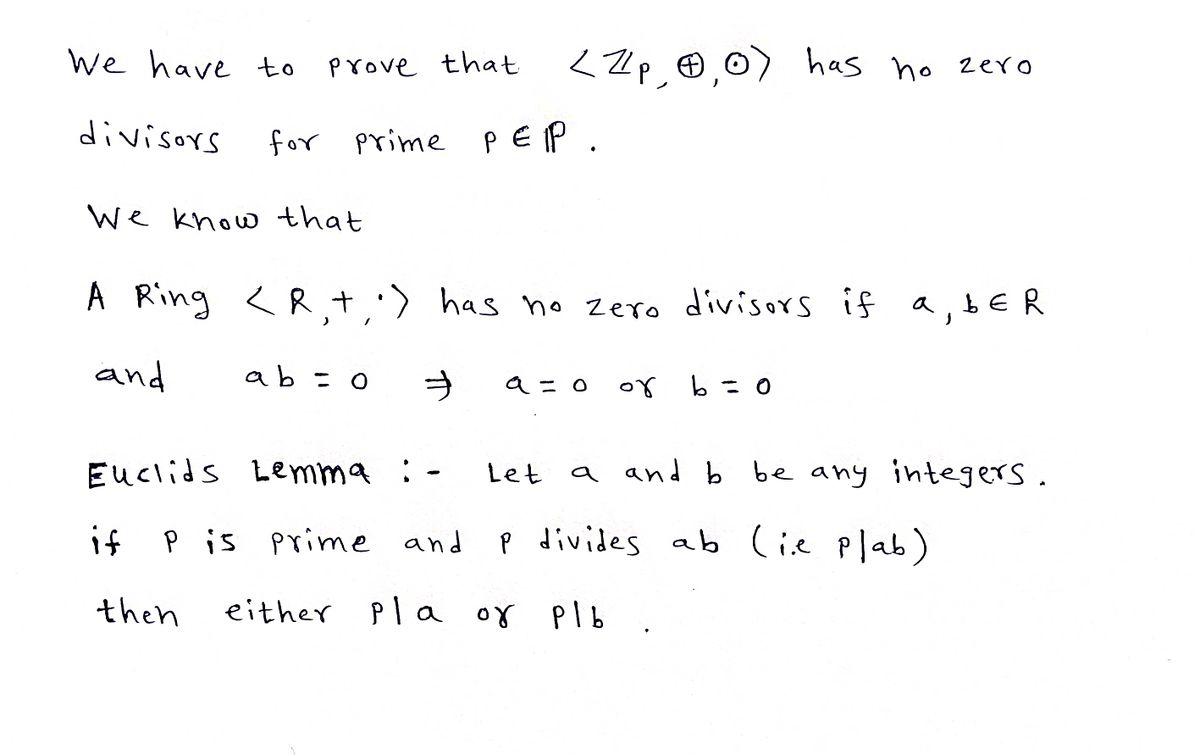 We have to prove that <ℤp, ⊕, ⊙> has no zero
divisors for prime p ∈ ℙ .
We know that
A Ring <R, +, ·> has no zero divisors if a, b ∈ R
and ab = 0 ⇒ a = 0 or b = 0
Euclids Lemma :- Let a and b be any integers .
if P is prime and p divides ab (i.e p|ab)
then either p|a or p|b .